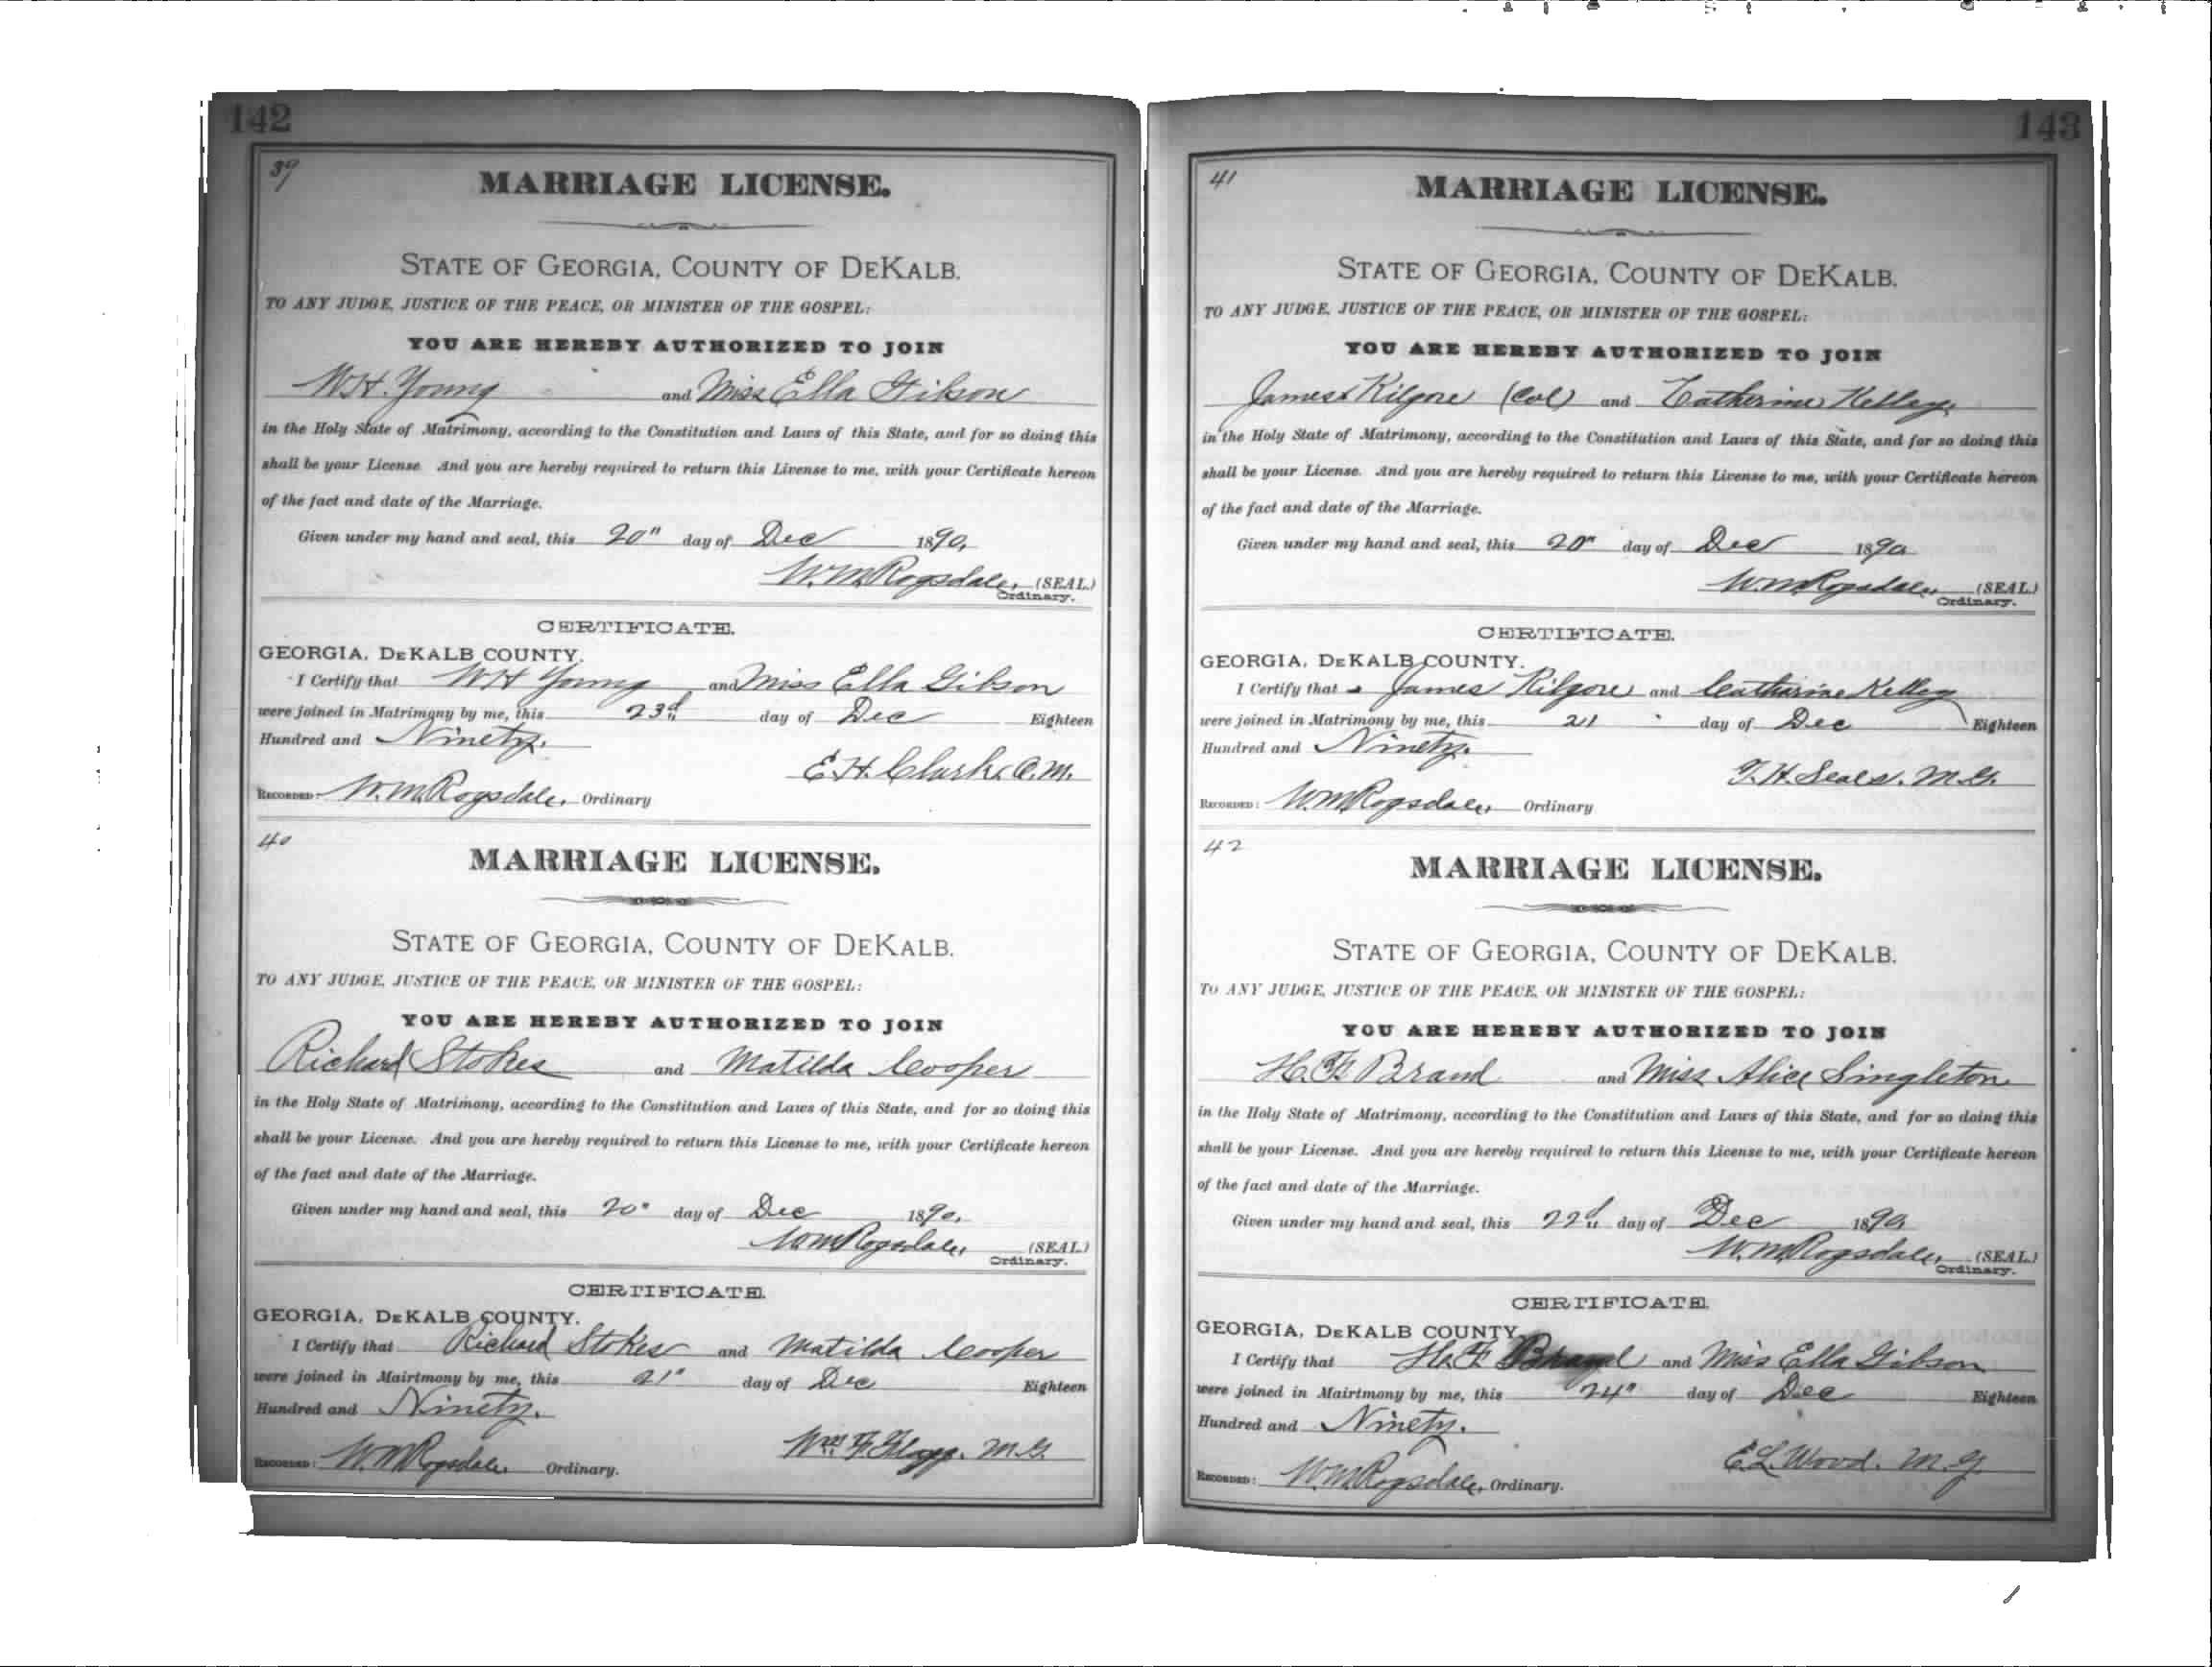 142
39
MARRIAGE LICENSE.
STATE OF GEORGIA, COUNTY OF DEKALB.
TO ANY JUDGE, JUSTICE OF THE PEACE, OR MINISTER OF THE GOSPEL:
YOU ARE HEREBY AUTHORIZED TO JOIN
W.H. Young and Miss Ella Gibson
in the Holy State of Matrimony, according to the Constitution and Laws of this State, and for so doing this
shall be your License. And you are hereby required to return this License to me, with your Certificate hereon
of the fact and date of the Marriage.
Given under my hand and seal, this 20" day of Dec 1890,
W.M. Ragsdale, (SEAL)
Ordinary.
CERTIFICATE.
GEORGIA, DEKALB COUNTY.
I Certify that W H Young and Miss Ella Gibson
were joined in Matrimony by me, this 23d day of Dec Eighteen
Hundred and Ninety.
E.H. Clark,
RECORDED: W.M. Ragsdale, Ordinary
40
MARRIAGE LICENSE.
STATE OF GEORGIA, COUNTY OF DEKALB.
TO ANY JUDGE, JUSTICE OF THE PEACE, OR MINISTER OF THE GOSPEL:
YOU ARE HEREBY AUTHORIZED TO JOIN
Richard Stokes and Matilda Cooper
in the Holy State of Matrimony, according to the Constitution and Laws of this State, and for so doing this
shall be your License. And you are hereby required to return this License to me, with your Certificate hereon
of the fact and date of the Marriage.
Given under my hand and seal, this 20" day of Dec 1890,
W.M. Ragsdale, (SEAL)
Ordinary.
CERTIFICATE.
GEORGIA, DEKALB COUNTY.
I Certify that Richard Stokes and Matilda Cooper
were joined in Mairtmony by me, this 21" day of Dec Eighteen
Hundred and Ninety.
Wm F. M.G.
RECORDED: W.M. Ragsdale, Ordinary.
143
41
MARRIAGE LICENSE.
STATE OF GEORGIA, COUNTY OF DEKALB.
TO ANY JUDGE, JUSTICE OF THE PEACE, OR MINISTER OF THE GOSPEL:
YOU ARE HEREBY AUTHORIZED TO JOIN
James Kilgore (Col) and Catherine Kelley,
in the Holy State of Matrimony, according to the Constitution and Laws of this State, and for so doing this
shall be your License. And you are hereby required to return this License to me, with your Certificate hereon
of the fact and date of the Marriage.
Given under my hand and seal, this 20" day of Dec 1890
W.M. Ragsdale, (SEAL)
Ordinary.
CERTIFICATE.
GEORGIA, DEKALB COUNTY.
I Certify that James Kilgore and Catharine Kelley
were joined in Matrimony by me, this 21 day of Dec Eighteen
Hundred and Ninety.
T.H. Seals. M.G.
RECORDED: W.M. Ragsdale, Ordinary
42
MARRIAGE LICENSE.
STATE OF GEORGIA, COUNTY OF DEKALB.
TO ANY JUDGE, JUSTICE OF THE PEACE, OR MINISTER OF THE GOSPEL:
YOU ARE HEREBY AUTHORIZED TO JOIN
H.F. Brand and Miss Alice Singleton
in the Holy State of Matrimony, according to the Constitution and Laws of this State, and for so doing this
shall be your License. And you are hereby required to return this License to me, with your Certificate hereon
of the fact and date of the Marriage.
Given under my hand and seal, this 22d day of Dec 1890
W.M. Ragsdale, (SEAL)
Ordinary.
CERTIFICATE.
GEORGIA, DEKALB COUNTY.
I Certify that H. F Brand and Miss Ella Gibson
were joined in Mairtmony by me, this 24" day of Dec Eighteen
Hundred and Ninety.
E.L. Wood. M.G.
RECORDED: W.M. Ragsdale, Ordinary.